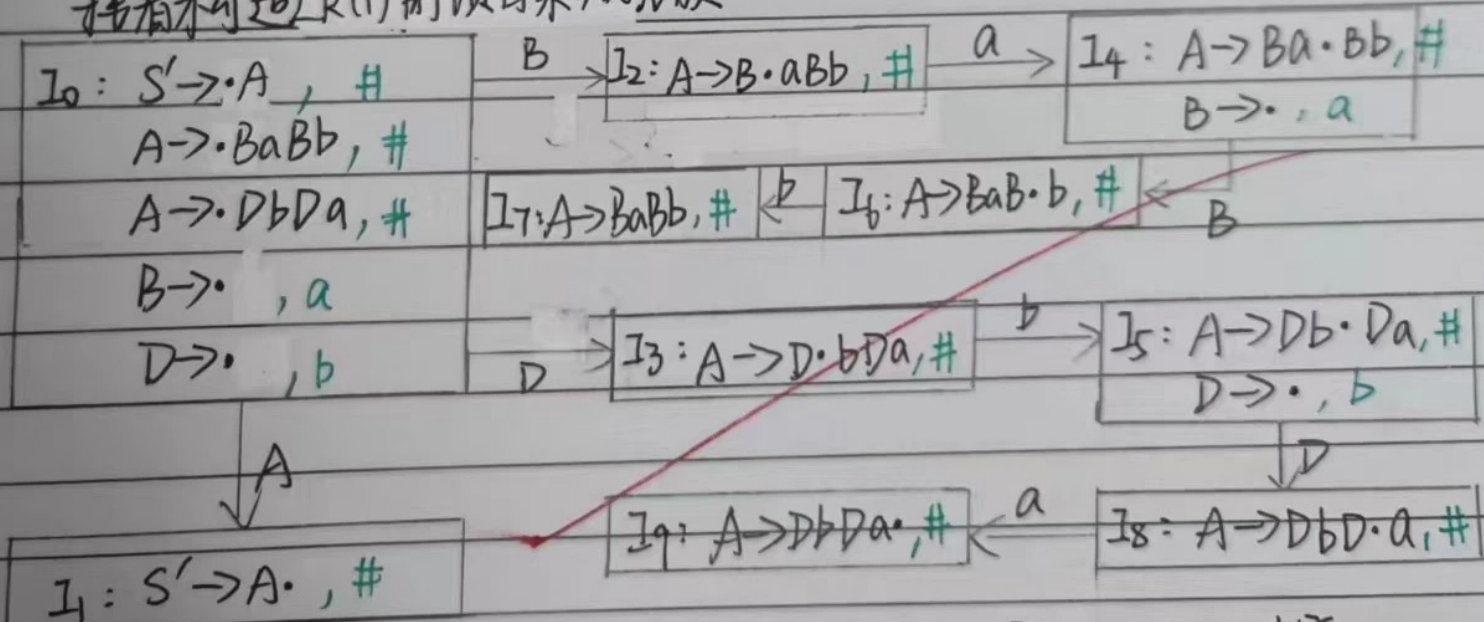 I0: S'→·A , #
A→·BaBb, #
A→·DbDa, #
B→· , a
D→· , b
B
I2: A→B·aBb, #
a
I4: A→Ba·Bb, #
B→·, a
B
I6: A→BaB·b, #
b
I7: A→BaBb, #
D
I3: A→D·bDa, #
b
I5: A→Db·Da, #
D→·, b
D
I8: A→DbD·a, #
a
I9: A→DbDa·, #
A
I1: S'→A· , #